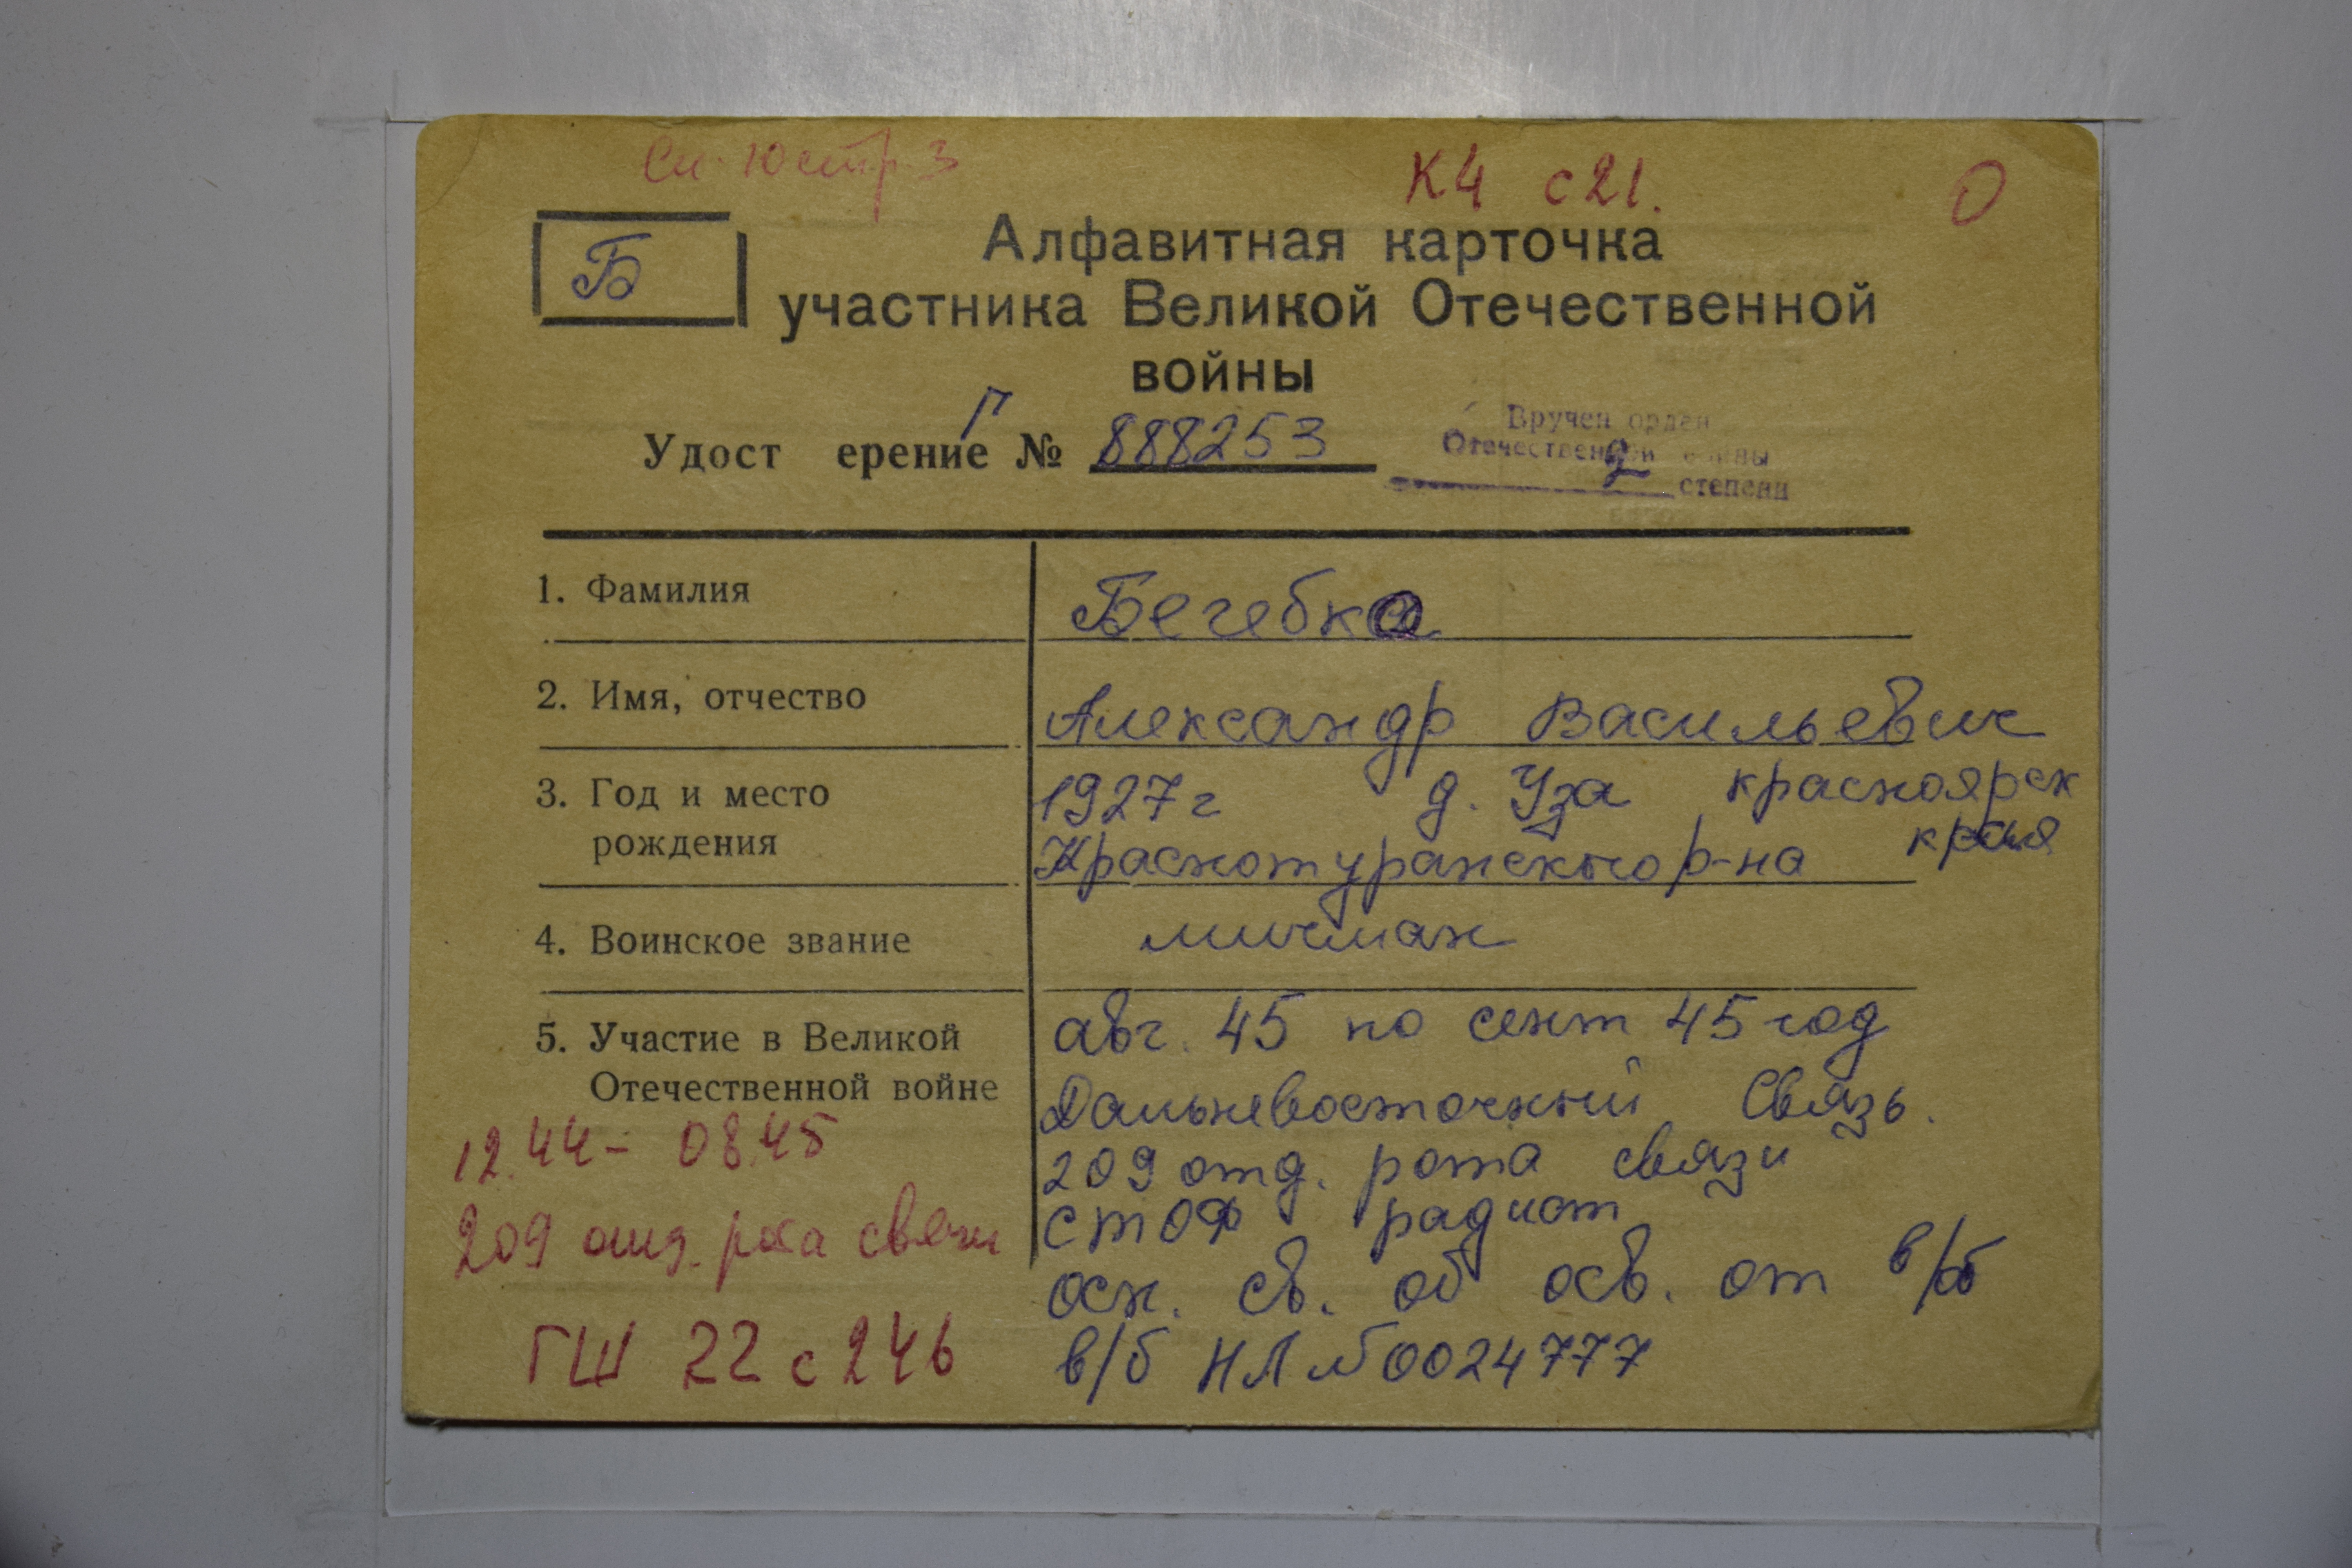 К4 с21.
О
Б
Алфавитная карточка
участника Великой Отечественной
войны
Удост ерение Г № 888253
Вручен орден
Отечественной войны
2 степени
1. Фамилия Бегебка
2. Имя, отчество Александр Васильевич
3. Год и место 1927 г д. Уза красноярск
рождения Краснотуранского р-на края
4. Воинское звание мичман
5. Участие в Великой авг. 45 по сент 45 год
Отечественной войне Дальневосточный Связь.
12.44 - 08.45 209 отд. рота связи
209 отд. рота связи СТОФ радист
осн. св. об осв. от в/об
ГШ 22 с 246 в/б НЛ №0024777